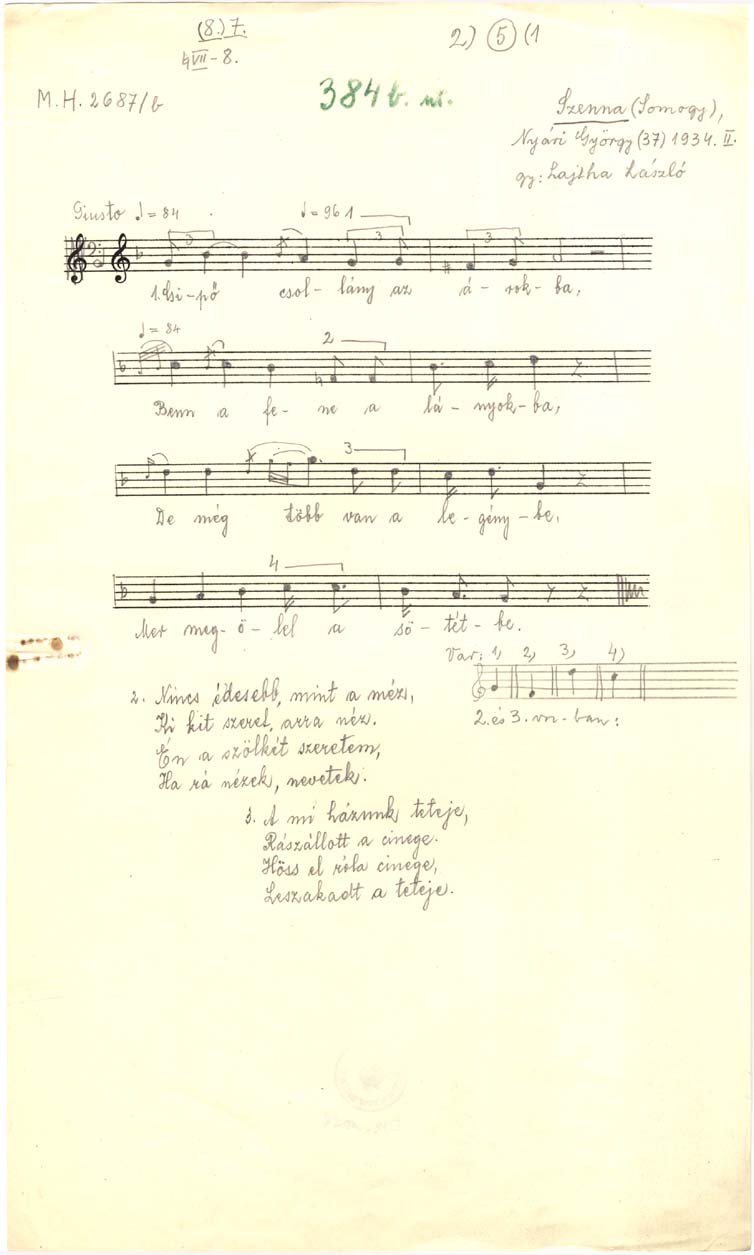 (8.) 7.
VII - 8.
2) 5 (1
M.H. 2687/b
384 b.
Szenna (Somogy),
Nyári György (37) 1934. II.
gy: Lajtha László
Giusto ♩ = 84 ♩ = 96 1
3 3 3
1. Csi - pő csol - lány az á - rok - ba,
♩ = 84 2
Benn a fe - ne a lá - nyok - ba,
3
De még több van a le - gény - be,
4
Mer meg - ö - lel a sö - tét - be.
Var: 1) 2) 3) 4)
2. és 3. vsz - ban:
2. Nincs édesebb, mint a méz,
Ki kit szeret, arra néz.
Én a szőlkét szeretem,
Ha rá nézek, nevetek.
3. A mi házunk teteje,
Rászállott a cinege.
Höss el róla cinege,
Leszakadt a teteje.